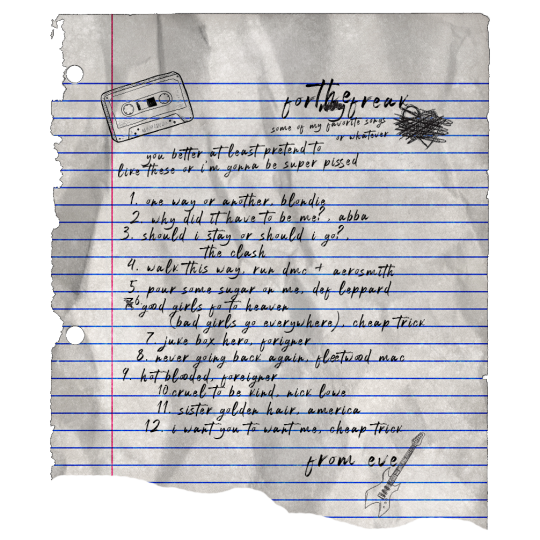 for the freak
some of my favorite songs
or whatever
you better at least pretend to
like these or i'm gonna be super pissed
1. one way or another, blondie
2. why did it have to be me?, abba
3. should i stay or should i go?,
the clash
4. walk this way, run dmc + aerosmith
5. pour some sugar on me, def leppard
6. good girls go to heaven
(bad girls go everywhere), cheap trick
7. juke box hero, forigner
8. never going back again, fleetwood mac
9. hot blooded, foreigner
10. cruel to be kind, nick lowe
11. sister golden hair, america
12. i want you to want me, cheap trick
from eve